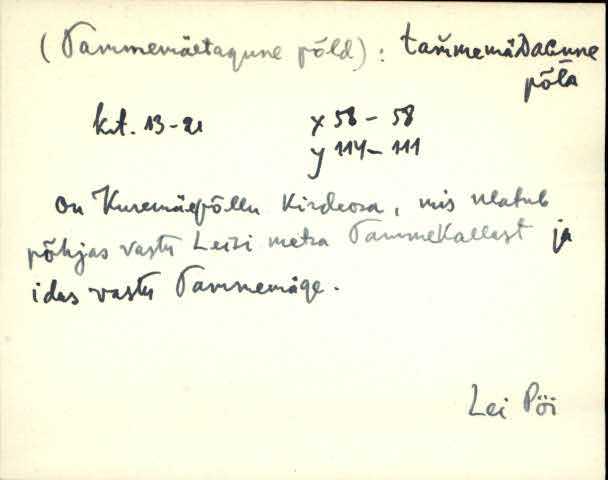 (Tammemäetagune põld): tam̆memäDaGune
põlᴅ
krt. 13-21 x 58 - 58
y 114 - 111
on Kuremäepõllu kirdeosa, mis ulatub
põhjas vastu Leisi metsa Tammekallast ja
idas vastu Tammemäge.
Lei Pöi